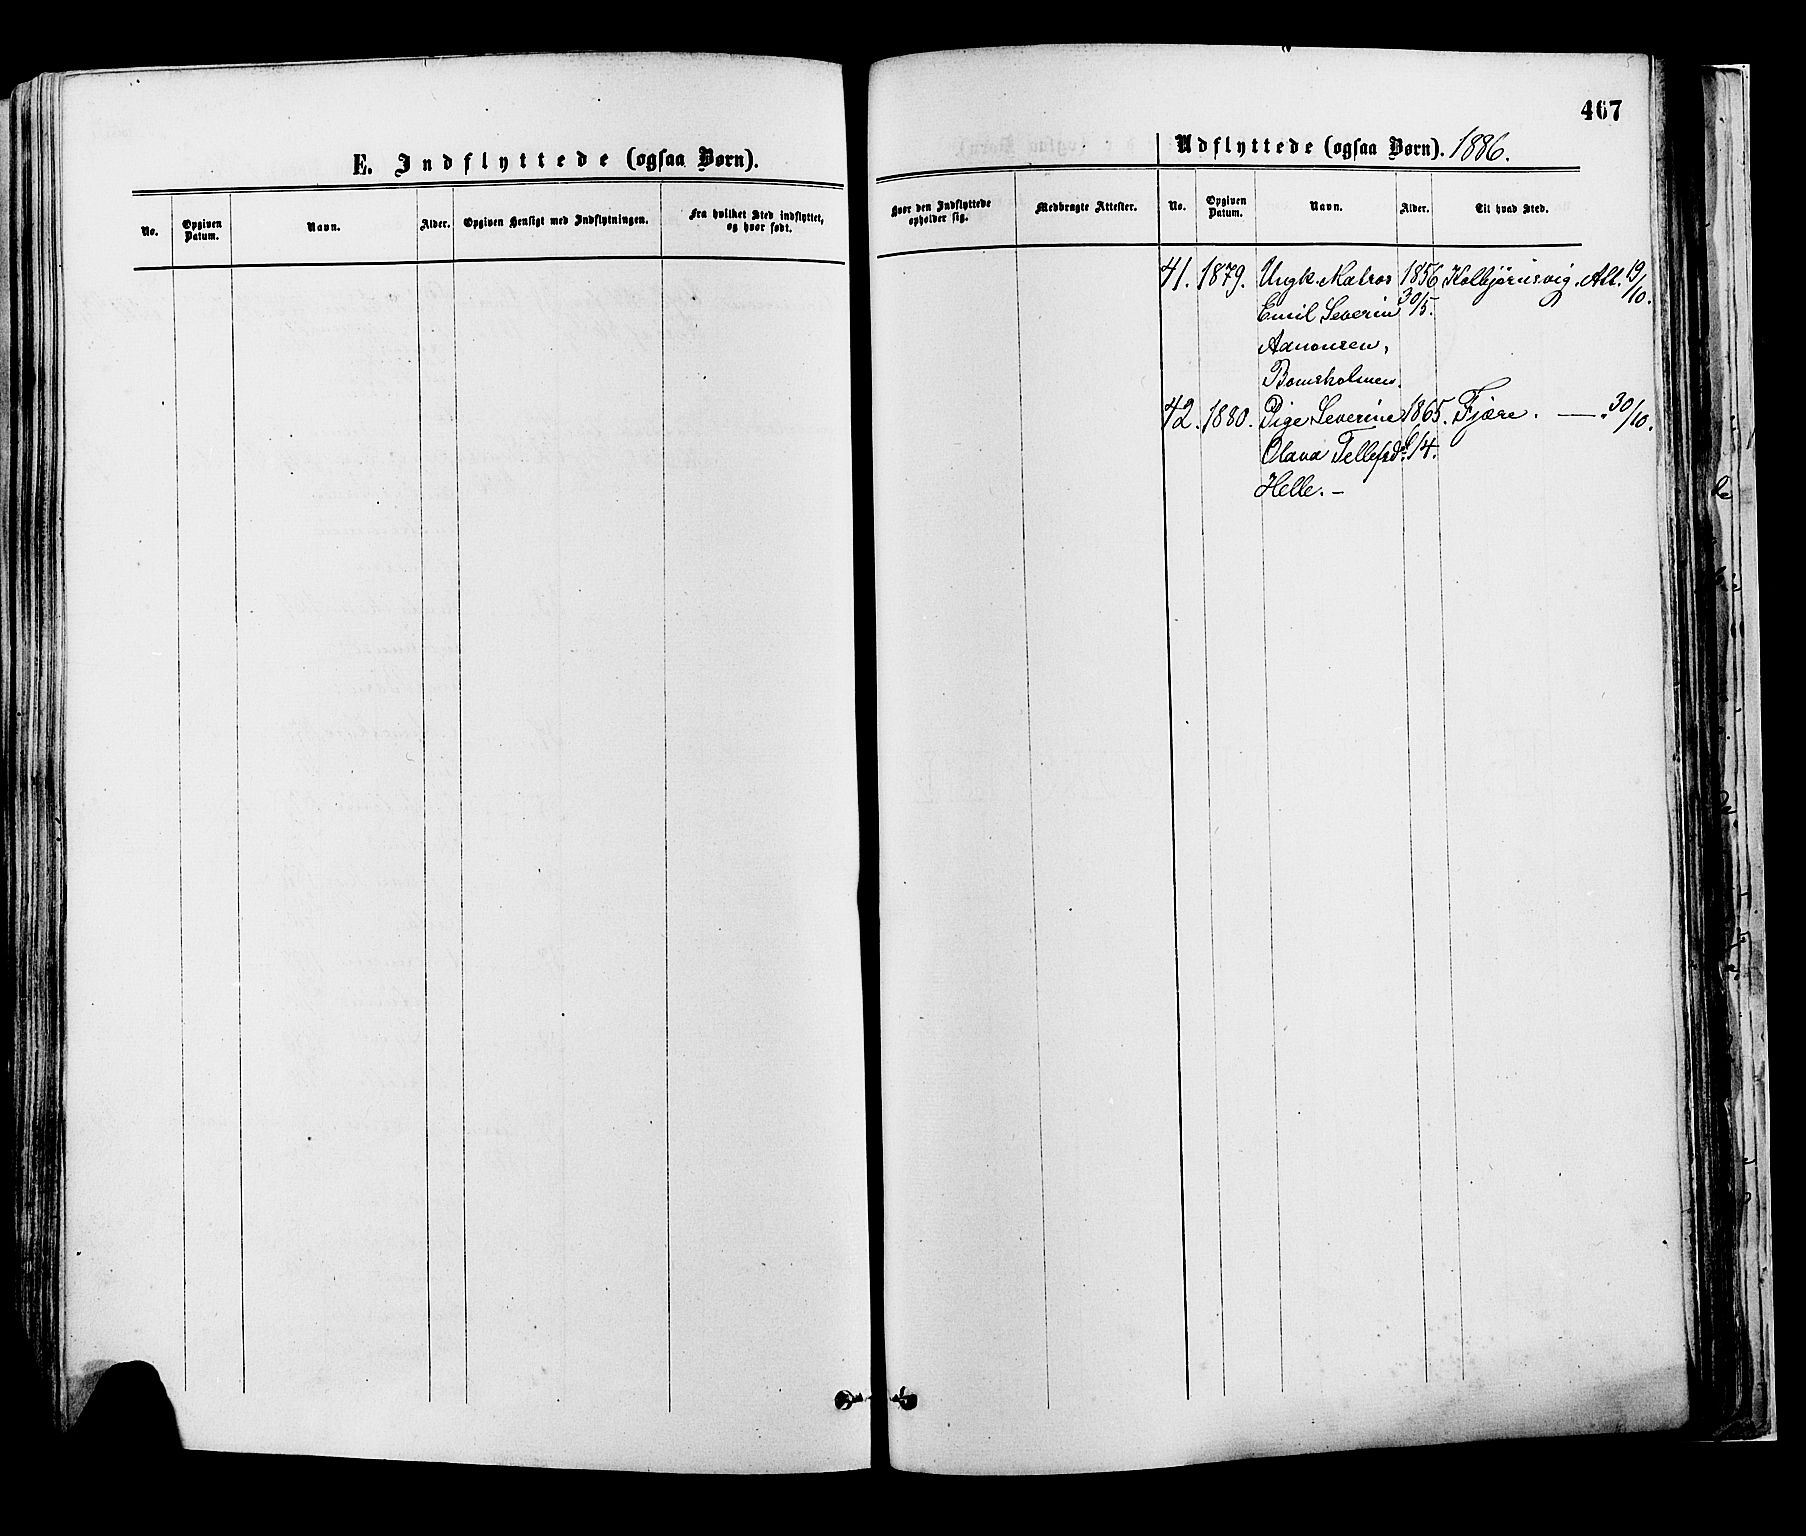 E. Indflyttede (ogsaa Børn).
No.
Opgiven Datum.
Navn.
Alder.
Opgiven Hensigt med Indflytningen.
Fra hvilket Sted indflyttet,
og hvor født.
467
Udflyttede (ogsaa Børn). 1886.
Hvor den Indflyttede
opholder sig.
Medbragte Attester.
No.
Opgiven Datum.
Navn.
Alder.
Til hvad Sted.
41. 1879. Ungk. Matros 1856 Kolbjørnsvig. Att. 19/10.
Emil Severin 30/5.
Aanonsen,
Bomsholmen.
42. 1880. Pige Severine 1865. Fjære. — . 30/10.
Olava Tellefsd. /4.
Helle. –